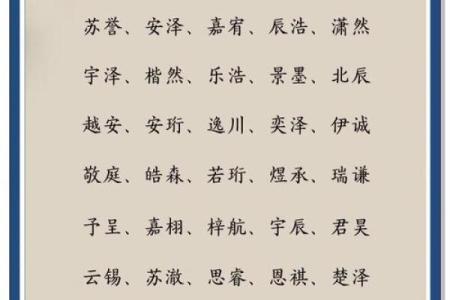 苏誉、安泽、嘉宥、辰浩、潇然
宇泽、楷然、乐浩、景墨、北辰
越安、安珩、逸川、奕泽、伊诚
敬庭、皓森、若珩、煜承、瑞谦
予呈、嘉栩、梓航、宇辰、君昊
云锡、苏澈、思睿、恩祺、楚泽